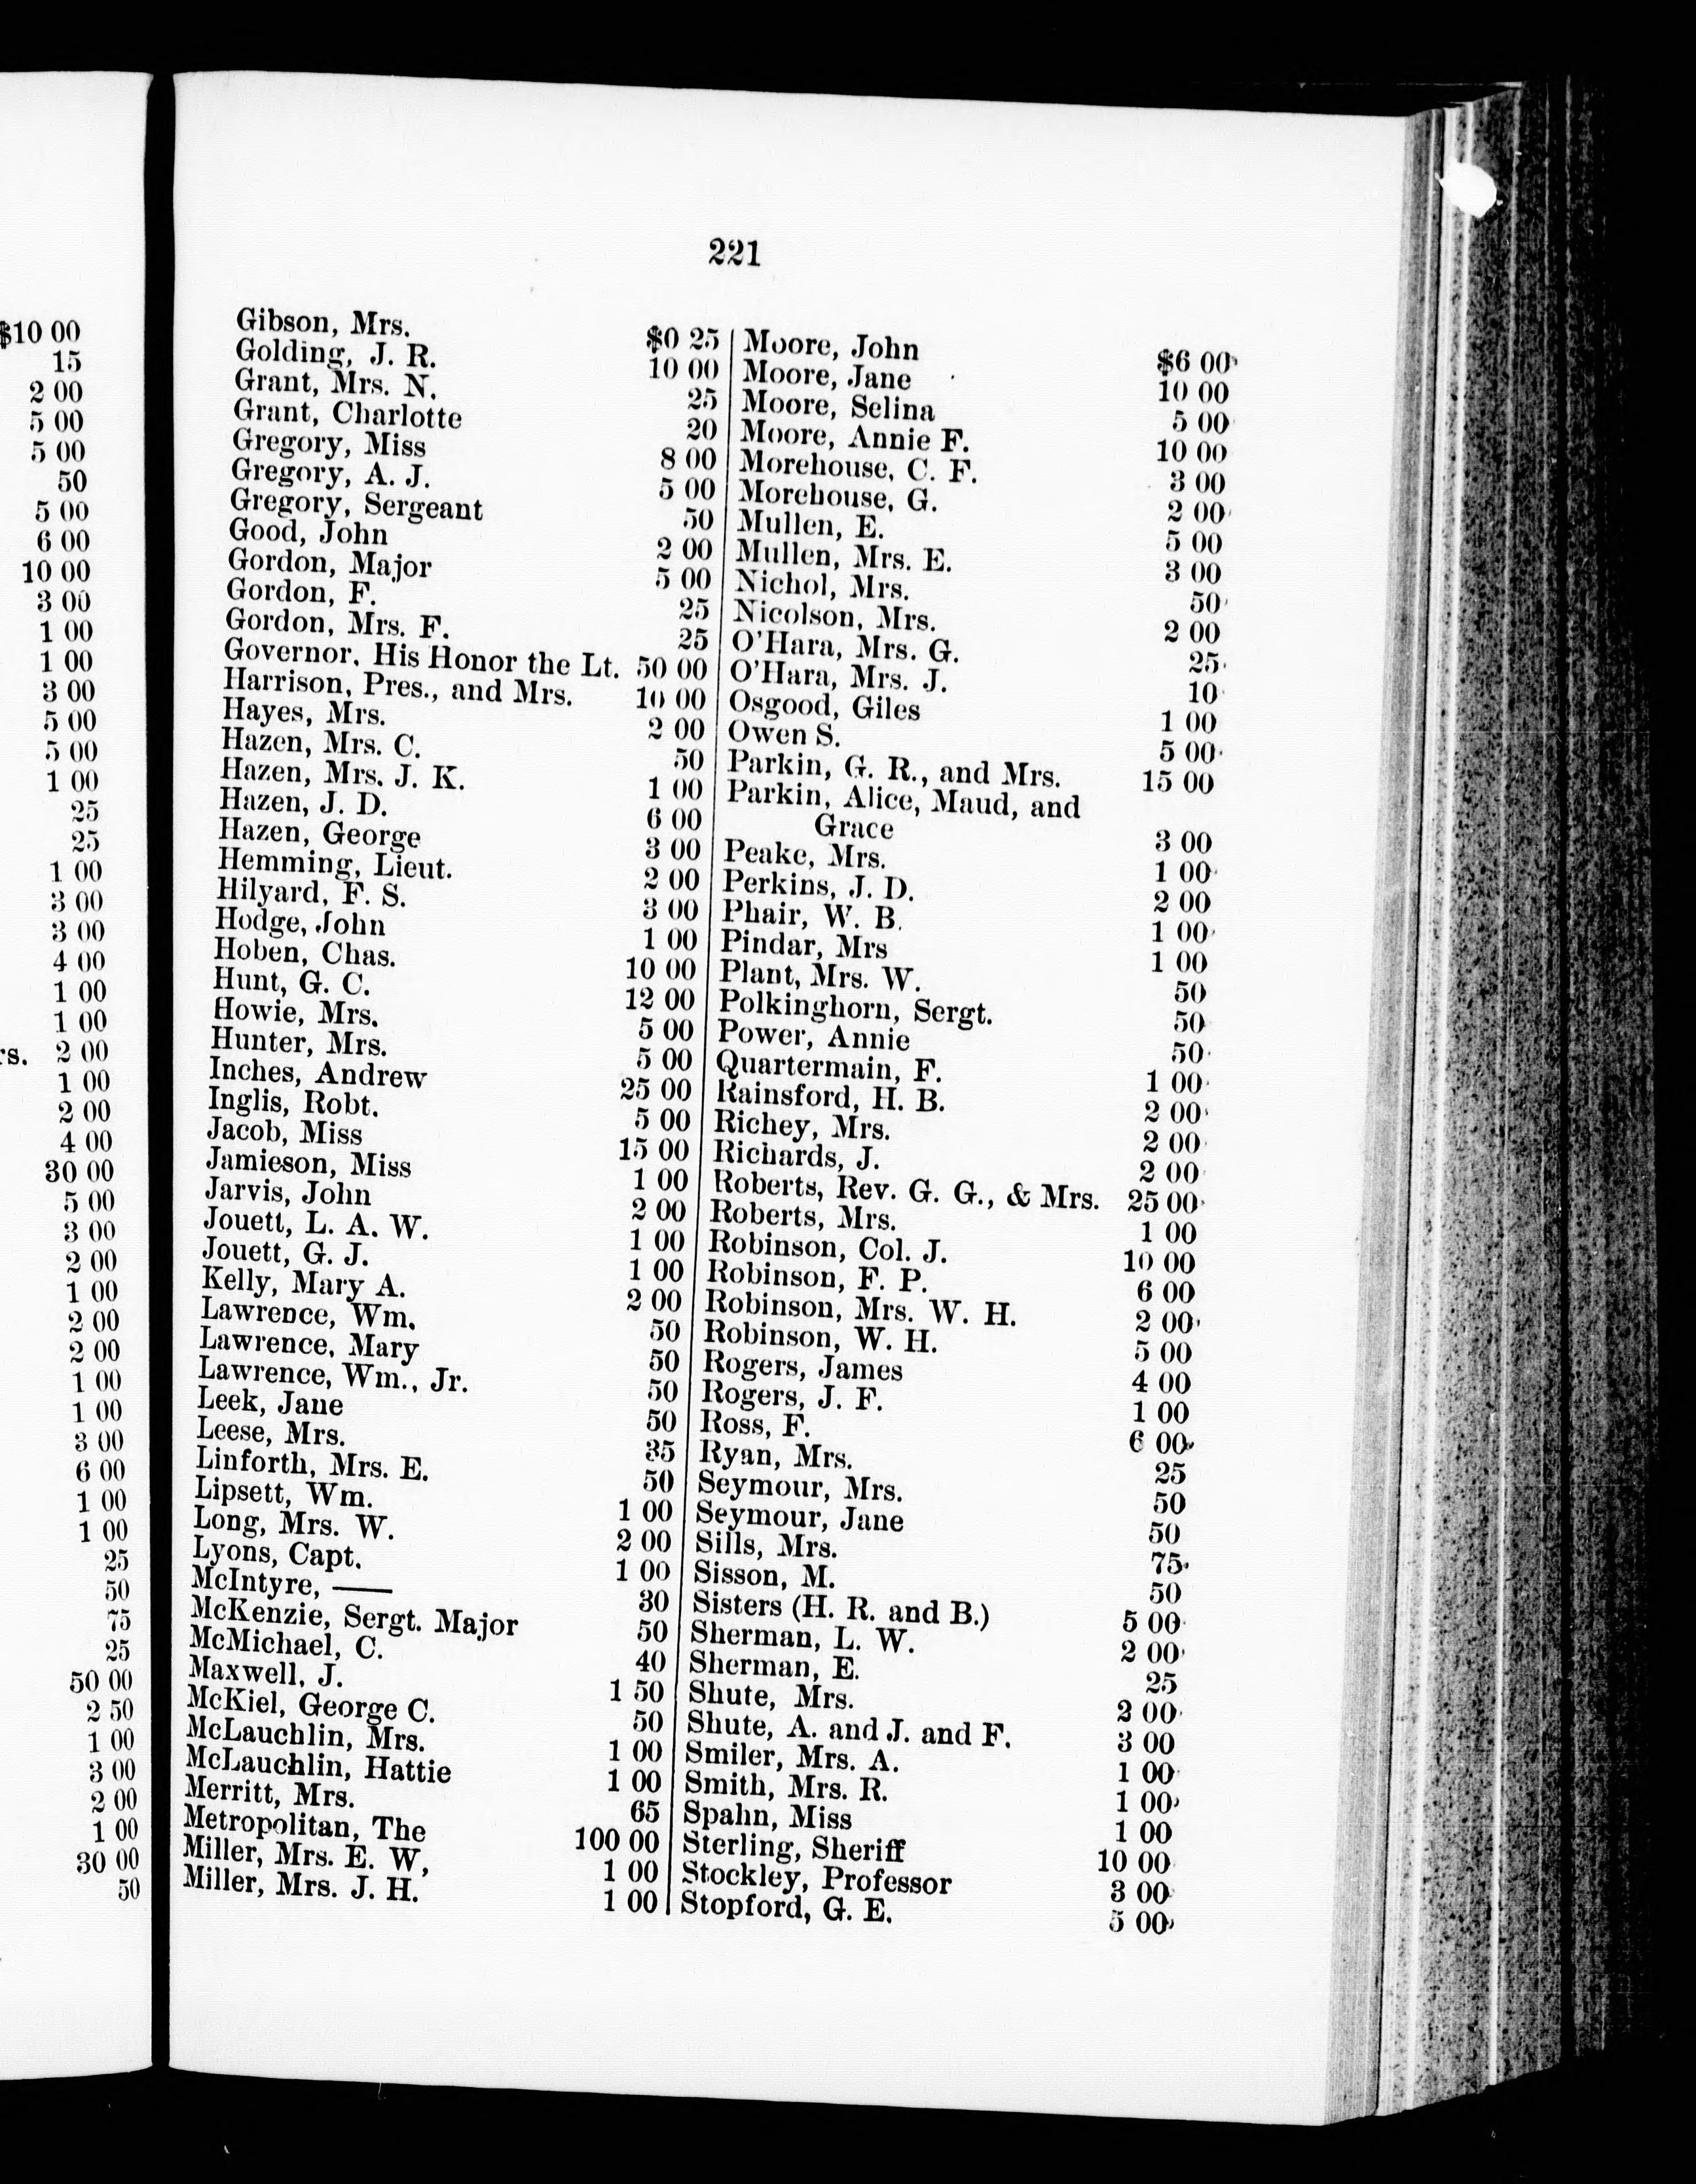 $10 00
15
2 00
5 00
5 00
50
5 00
6 00
10 00
3 00
1 00
1 00
3 00
5 00
5 00
1 00
25
25
1 00
3 00
3 00
4 00
1 00
1 00
rs. 2 00
1 00
2 00
4 00
30 00
5 00
3 00
2 00
1 00
2 00
2 00
1 00
1 00
3 00
6 00
1 00
1 00
25
50
75
25
50 00
2 50
1 00
3 00
2 00
1 00
30 00
50
221
Gibson, Mrs. $0 25
Golding, J. R. 10 00
Grant, Mrs. N. 25
Grant, Charlotte 20
Gregory, Miss 8 00
Gregory, A. J. 5 00
Gregory, Sergeant 50
Good, John 2 00
Gordon, Major 5 00
Gordon, F. 25
Gordon, Mrs. F. 25
Governor, His Honor the Lt. 50 00
Harrison, Pres., and Mrs. 10 00
Hayes, Mrs. 2 00
Hazen, Mrs. C. 50
Hazen, Mrs. J. K. 1 00
Hazen, J. D. 6 00
Hazen, George 3 00
Hemming, Lieut. 2 00
Hilyard, F. S. 3 00
Hodge, John 1 00
Hoben, Chas. 10 00
Hunt, G. C. 12 00
Howie, Mrs. 5 00
Hunter, Mrs. 5 00
Inches, Andrew 25 00
Inglis, Robt. 5 00
Jacob, Miss 15 00
Jamieson, Miss 1 00
Jarvis, John 2 00
Jouett, L. A. W. 1 00
Jouett, G. J. 1 00
Kelly, Mary A. 2 00
Lawrence, Wm. 50
Lawrence, Mary 50
Lawrence, Wm., Jr. 50
Leek, Jane 50
Leese, Mrs. 35
Linforth, Mrs. E. 50
Lipsett, Wm. 1 00
Long, Mrs. W. 2 00
Lyons, Capt. 1 00
McIntyre, —— 30
McKenzie, Sergt. Major 50
McMichael, C. 40
Maxwell, J. 1 50
McKiel, George C. 50
McLauchlin, Mrs. 1 00
McLauchlin, Hattie 1 00
Merritt, Mrs. 65
Metropolitan, The 100 00
Miller, Mrs. E. W, 1 00
Miller, Mrs. J. H. 1 00
Moore, John $6 00
Moore, Jane 10 00
Moore, Selina 5 00
Moore, Annie F. 10 00
Morehouse, C. F. 3 00
Morehouse, G. 2 00
Mullen, E. 5 00
Mullen, Mrs. E. 3 00
Nichol, Mrs. 50
Nicolson, Mrs. 2 00
O'Hara, Mrs. G. 25
O'Hara, Mrs. J. 10
Osgood, Giles 1 00
Owen S. 5 00
Parkin, G. R., and Mrs. 15 00
Parkin, Alice, Maud, and
Grace 3 00
Peake, Mrs. 1 00
Perkins, J. D. 2 00
Phair, W. B. 1 00
Pindar, Mrs 1 00
Plant, Mrs. W. 50
Polkinghorn, Sergt. 50
Power, Annie 50
Quartermain, F. 1 00
Rainsford, H. B. 2 00
Richey, Mrs. 2 00
Richards, J. 2 00
Roberts, Rev. G. G., & Mrs. 25 00
Roberts, Mrs. 1 00
Robinson, Col. J. 10 00
Robinson, F. P. 6 00
Robinson, Mrs. W. H. 2 00
Robinson, W. H. 5 00
Rogers, James 4 00
Rogers, J. F. 1 00
Ross, F. 6 00
Ryan, Mrs. 25
Seymour, Mrs. 50
Seymour, Jane 50
Sills, Mrs. 75
Sisson, M. 50
Sisters (H. R. and B.) 5 00
Sherman, L. W. 2 00
Sherman, E. 25
Shute, Mrs. 2 00
Shute, A. and J. and F. 3 00
Smiler, Mrs. A. 1 00
Smith, Mrs. R. 1 00
Spahn, Miss 1 00
Sterling, Sheriff 10 00
Stockley, Professor 3 00
Stopford, G. E. 5 00